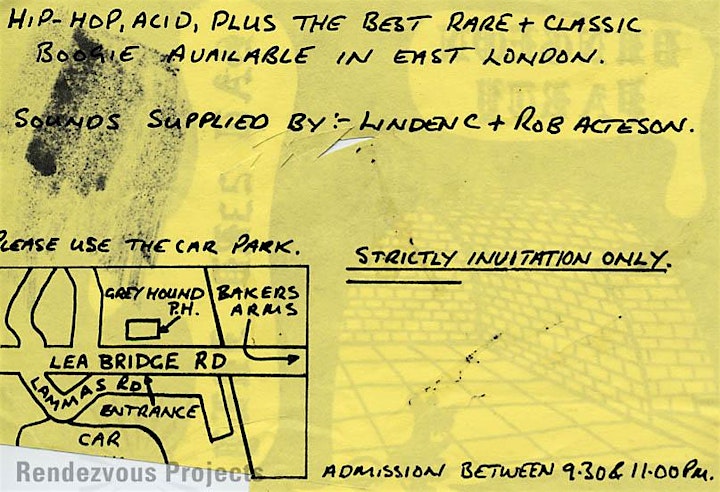 HIP-HOP, ACID, PLUS THE BEST RARE + CLASSIC
BOOGIE AVAILABLE IN EAST LONDON.
SOUNDS SUPPLIED BY:- LINDEN C + ROB ACTESON.
PLEASE USE THE CAR PARK.
STRICTLY INVITATION ONLY.
GREYHOUND
P.H.
BAKERS
ARMS
LEA BRIDGE RD
LAMMAS RD
ENTRANCE
CAR
Rendezvous Projects
ADMISSION BETWEEN 9.30 & 11.00 P.M.